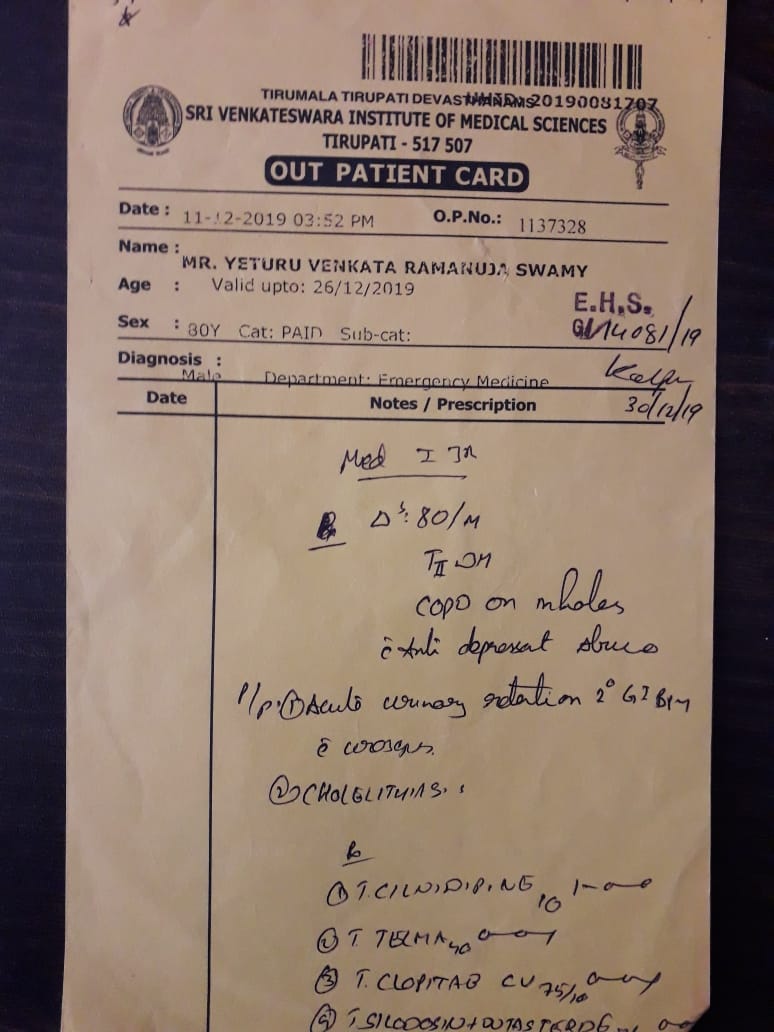 TIRUMALA TIRUPATI DEVASTHANAMS UHID: 20190081707
SRI VENKATESWARA INSTITUTE OF MEDICAL SCIENCES
TIRUPATI - 517 507
OUT PATIENT CARD
Date : 11-12-2019 03:52 PM O.P.No.: 1137328
Name : MR. YETURU VENKATA RAMANUJA SWAMY
Age : Valid upto: 26/12/2019
E.H.S.
Sex : 80Y Cat: PAID Sub-cat: 14081/19
Diagnosis :
Male Department: Emergency Medicine
Date Notes / Prescription 30/12/19
Med I
Δs: 80/M
TII DM
COPD on inhalers
c̄ Anti depressat abuse
① Acute urinary retention 2° BPH
c̄
② CHOLELITHIAS
① T. CILNIDIPINE 10 1-0-0
② T. TELMA 40
③ T. CLOPITAB CV 75/10
④ T SILODOSIN + DUTASTERIDE